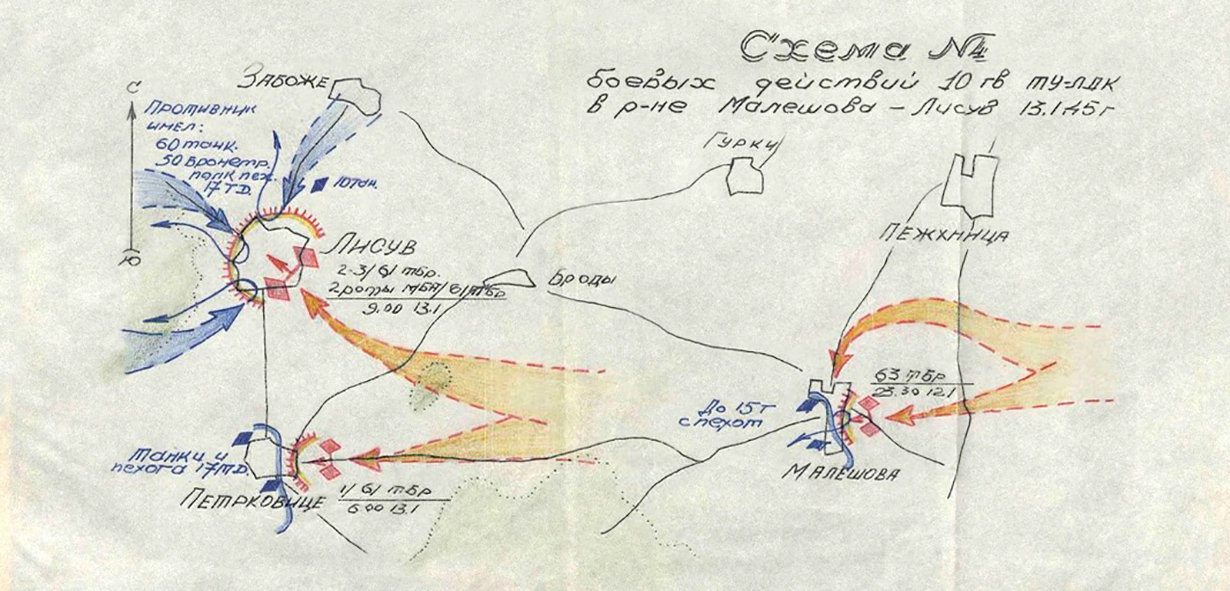 Схема №4
боевых действий 10 гв ту-лдк
в р-не Малешова – Лисув 13.1.45г
С
Ю
ЗАБОЖЕ
Противник
имел:
60 танк.
50 бронетр.
полк пех.
17 ТД.
10 тан.
ЛИСУВ
2-3/61 тбр.
2 роты МБА/61 тбр
9.00 13.1
ГУРКИ
ПЕЖХНИЦА
БРОДЫ
63 тбр
23.30 12.1
До 15 т
с пехот
МАЛЕШОВА
Танки и
пехота 17 тд.
ПЕТРКОВИЦЕ
1/61 тбр
6 00 13.1